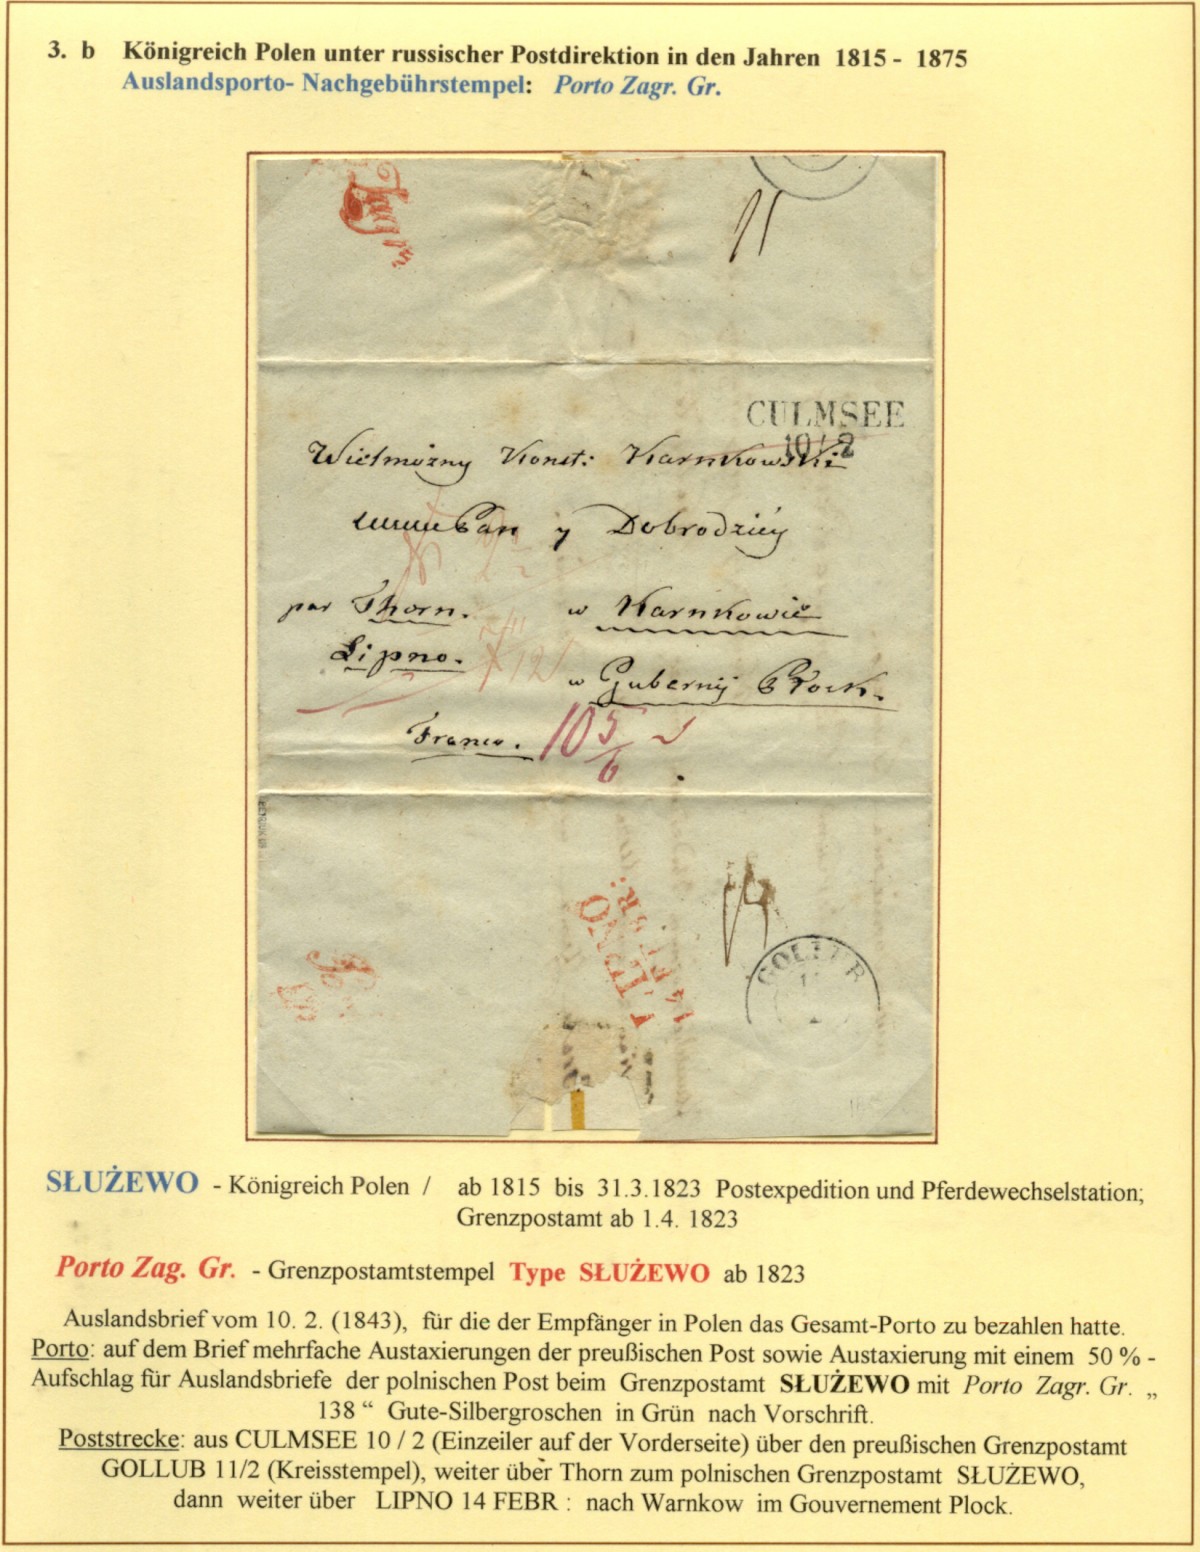 3. b Königreich Polen unter russischer Postdirektion in den Jahren 1815 - 1875
Auslandsporto- Nachgebührstempel: Porto Zagr. Gr.
11
CULMSEE
10 / 2
Wielmożny Konst: Karnkowski
Pan y Dobrodziéy
par Thorn. w Karnkowie
Lipno.
w Gubernij Płock.
Franco. 10 5/6
LIPNO
14 FEBR:
GOLLUB
SŁUŻEWO - Königreich Polen / ab 1815 bis 31.3.1823 Postexpedition und Pferdewechselstation;
Grenzpostamt ab 1.4. 1823
Porto Zag. Gr. - Grenzpostamtstempel Type SŁUŻEWO ab 1823
Auslandsbrief vom 10. 2. (1843), für die der Empfänger in Polen das Gesamt-Porto zu bezahlen hatte.
Porto: auf dem Brief mehrfache Austaxierungen der preußischen Post sowie Austaxierung mit einem 50 % -
Aufschlag für Auslandsbriefe der polnischen Post beim Grenzpostamt SŁUŻEWO mit Porto Zagr. Gr. „
138 “ Gute-Silbergroschen in Grün nach Vorschrift.
Poststrecke: aus CULMSEE 10 / 2 (Einzeiler auf der Vorderseite) über den preußischen Grenzpostamt
GOLLUB 11/2 (Kreisstempel), weiter über Thorn zum polnischen Grenzpostamt SŁUŻEWO,
dann weiter über LIPNO 14 FEBR : nach Warnkow im Gouvernement Plock.